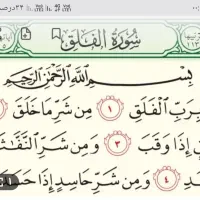 ٣٤درصد
سُورَةُ الفَلَقِ
بِسْمِ اللَّهِ الرَّحْمَٰنِ الرَّحِيمِ
بِرَبِّ الْفَلَقِ ١ مِن شَرِّ مَا خَلَقَ
إِذَا وَقَبَ ٣ وَمِن شَرِّ النَّفَّاثَ
٤ وَمِن شَرِّ حَاسِدٍ إِذَا حَسَدَ